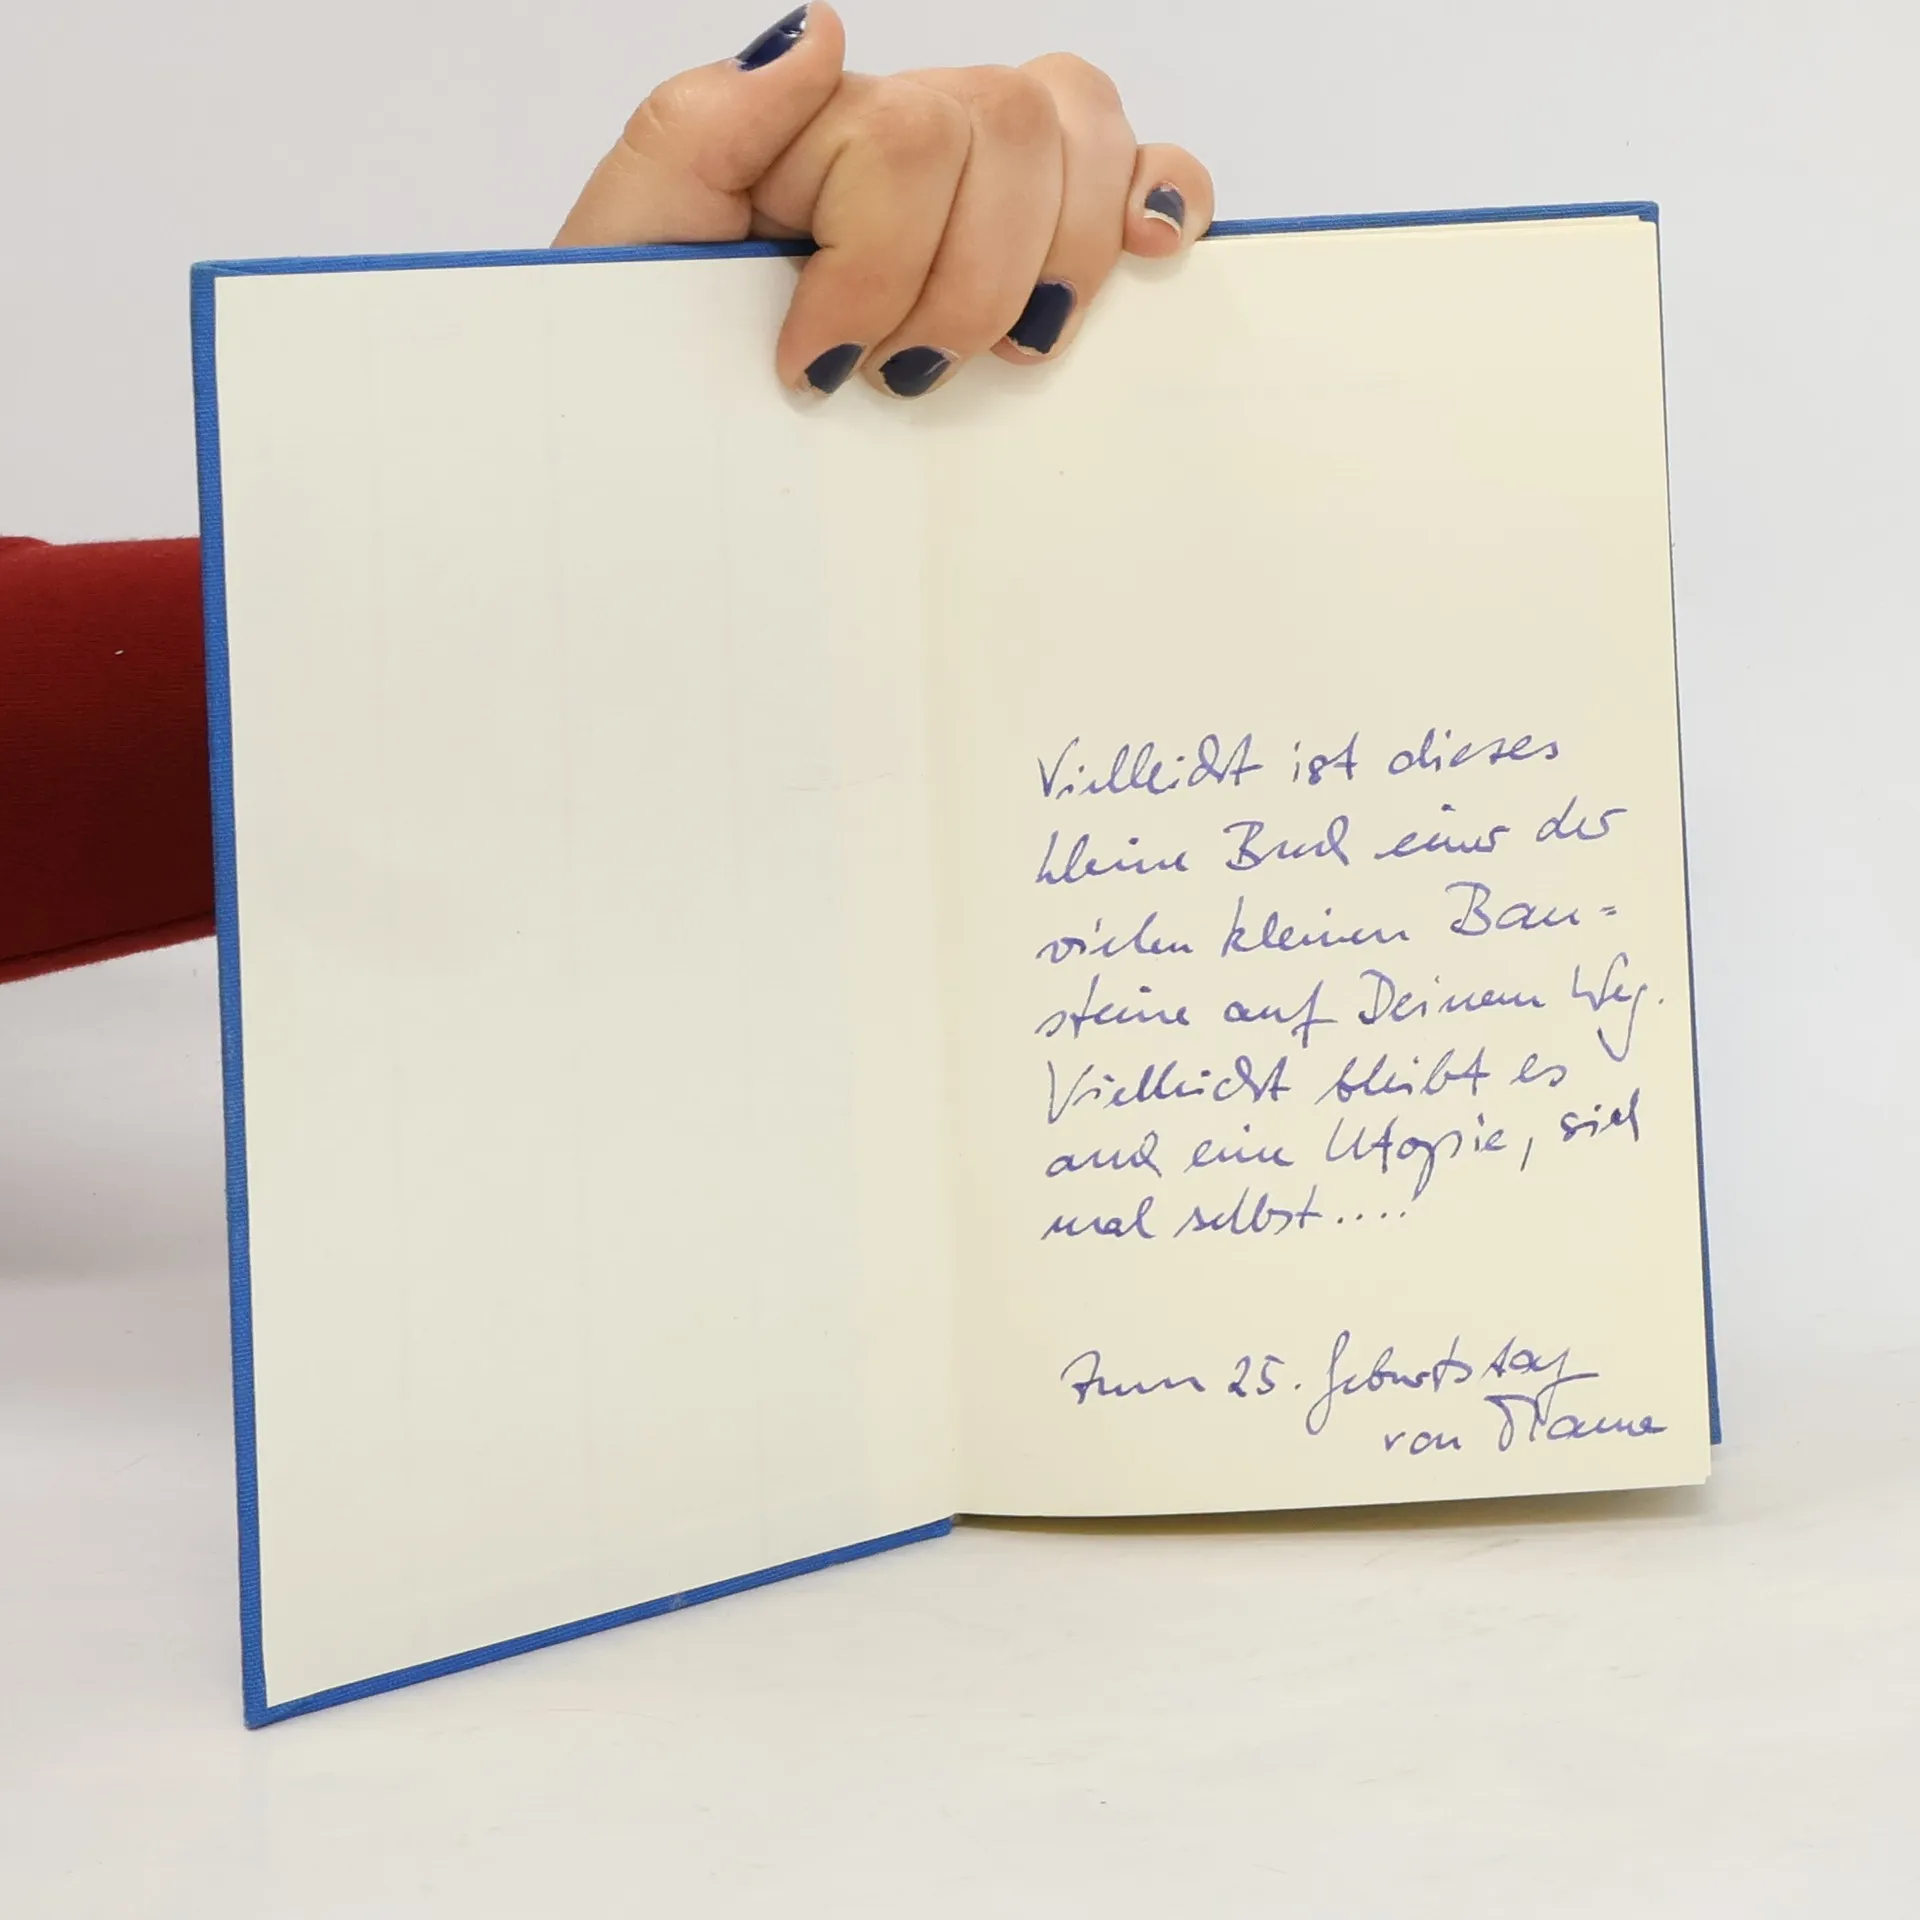 Vielleicht ist dieses
kleine Buch einer der
vielen kleinen Bau=
steine auf Deinem Weg.
Vielleicht bleibt es
auch eine Utopie, sieh
mal selbst....
Zum 25. Geburtstag
von Mama